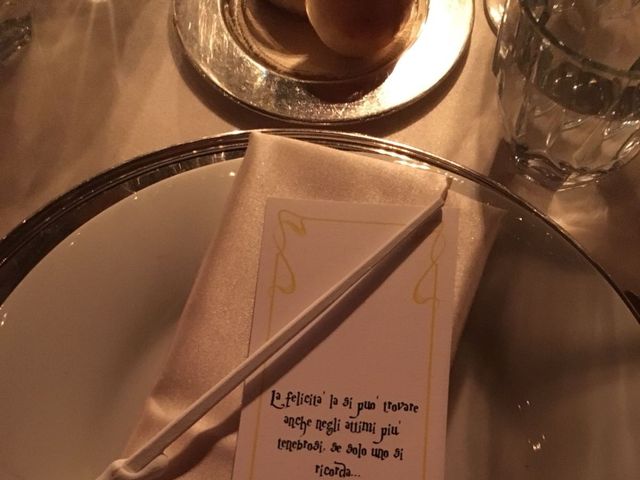 La felicita' la si puo' trovare
anche negli attimi piu'
tenebrosi, se solo uno si
ricorda...